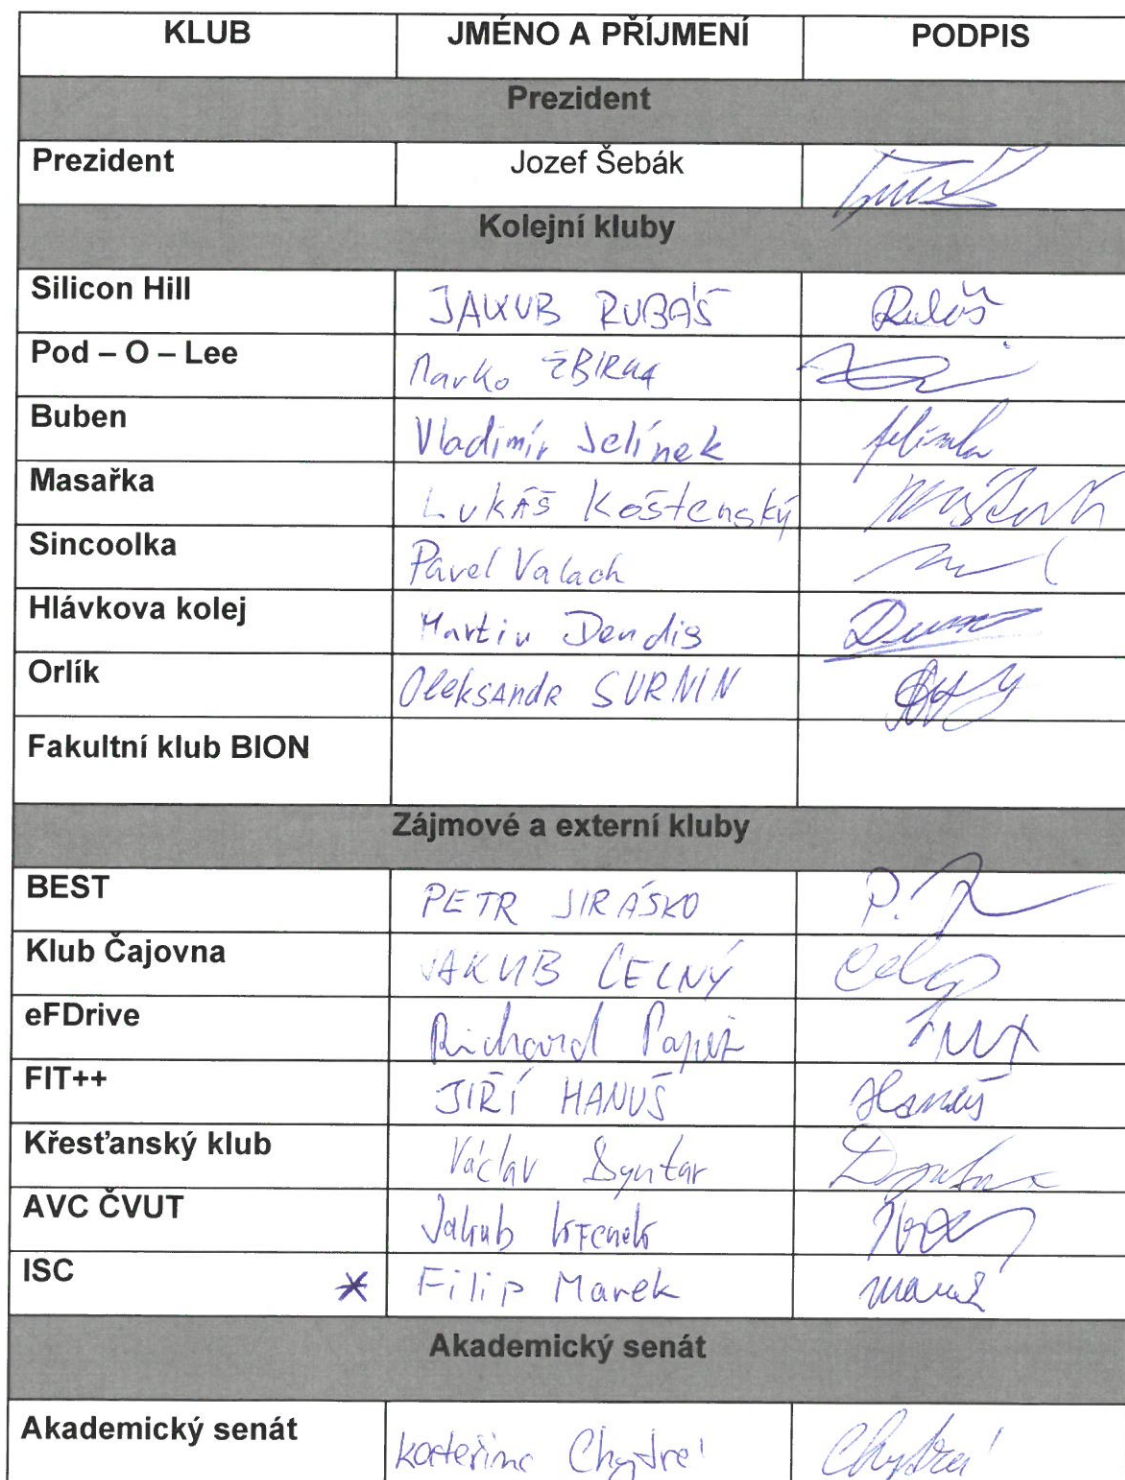 KLUB JMÉNO A PŘÍJMENÍ PODPIS
Prezident
Prezident Jozef Šebák
Kolejní kluby
Silicon Hill JAKUB RUBÁŠ Rubáš
Pod – O – Lee Marko
Buben Vladimír Jelínek
Masařka LUKÁŠ Koštenský
Sincoolka Pavel Valach
Hlávkova kolej Martin Dendis
Orlík Oleksandr SURNIN
Fakultní klub BION
Zájmové a externí kluby
BEST PETR JIRÁSKO
Klub Čajovna JAKUB CELNÝ
eFDrive Richard Papež
FIT++ JIŘÍ HANUŠ Hanuš
Křesťanský klub Václav
AVC ČVUT Jakub
ISC * Filip Marek
Akademický senát
Akademický senát Kateřina Chytrá